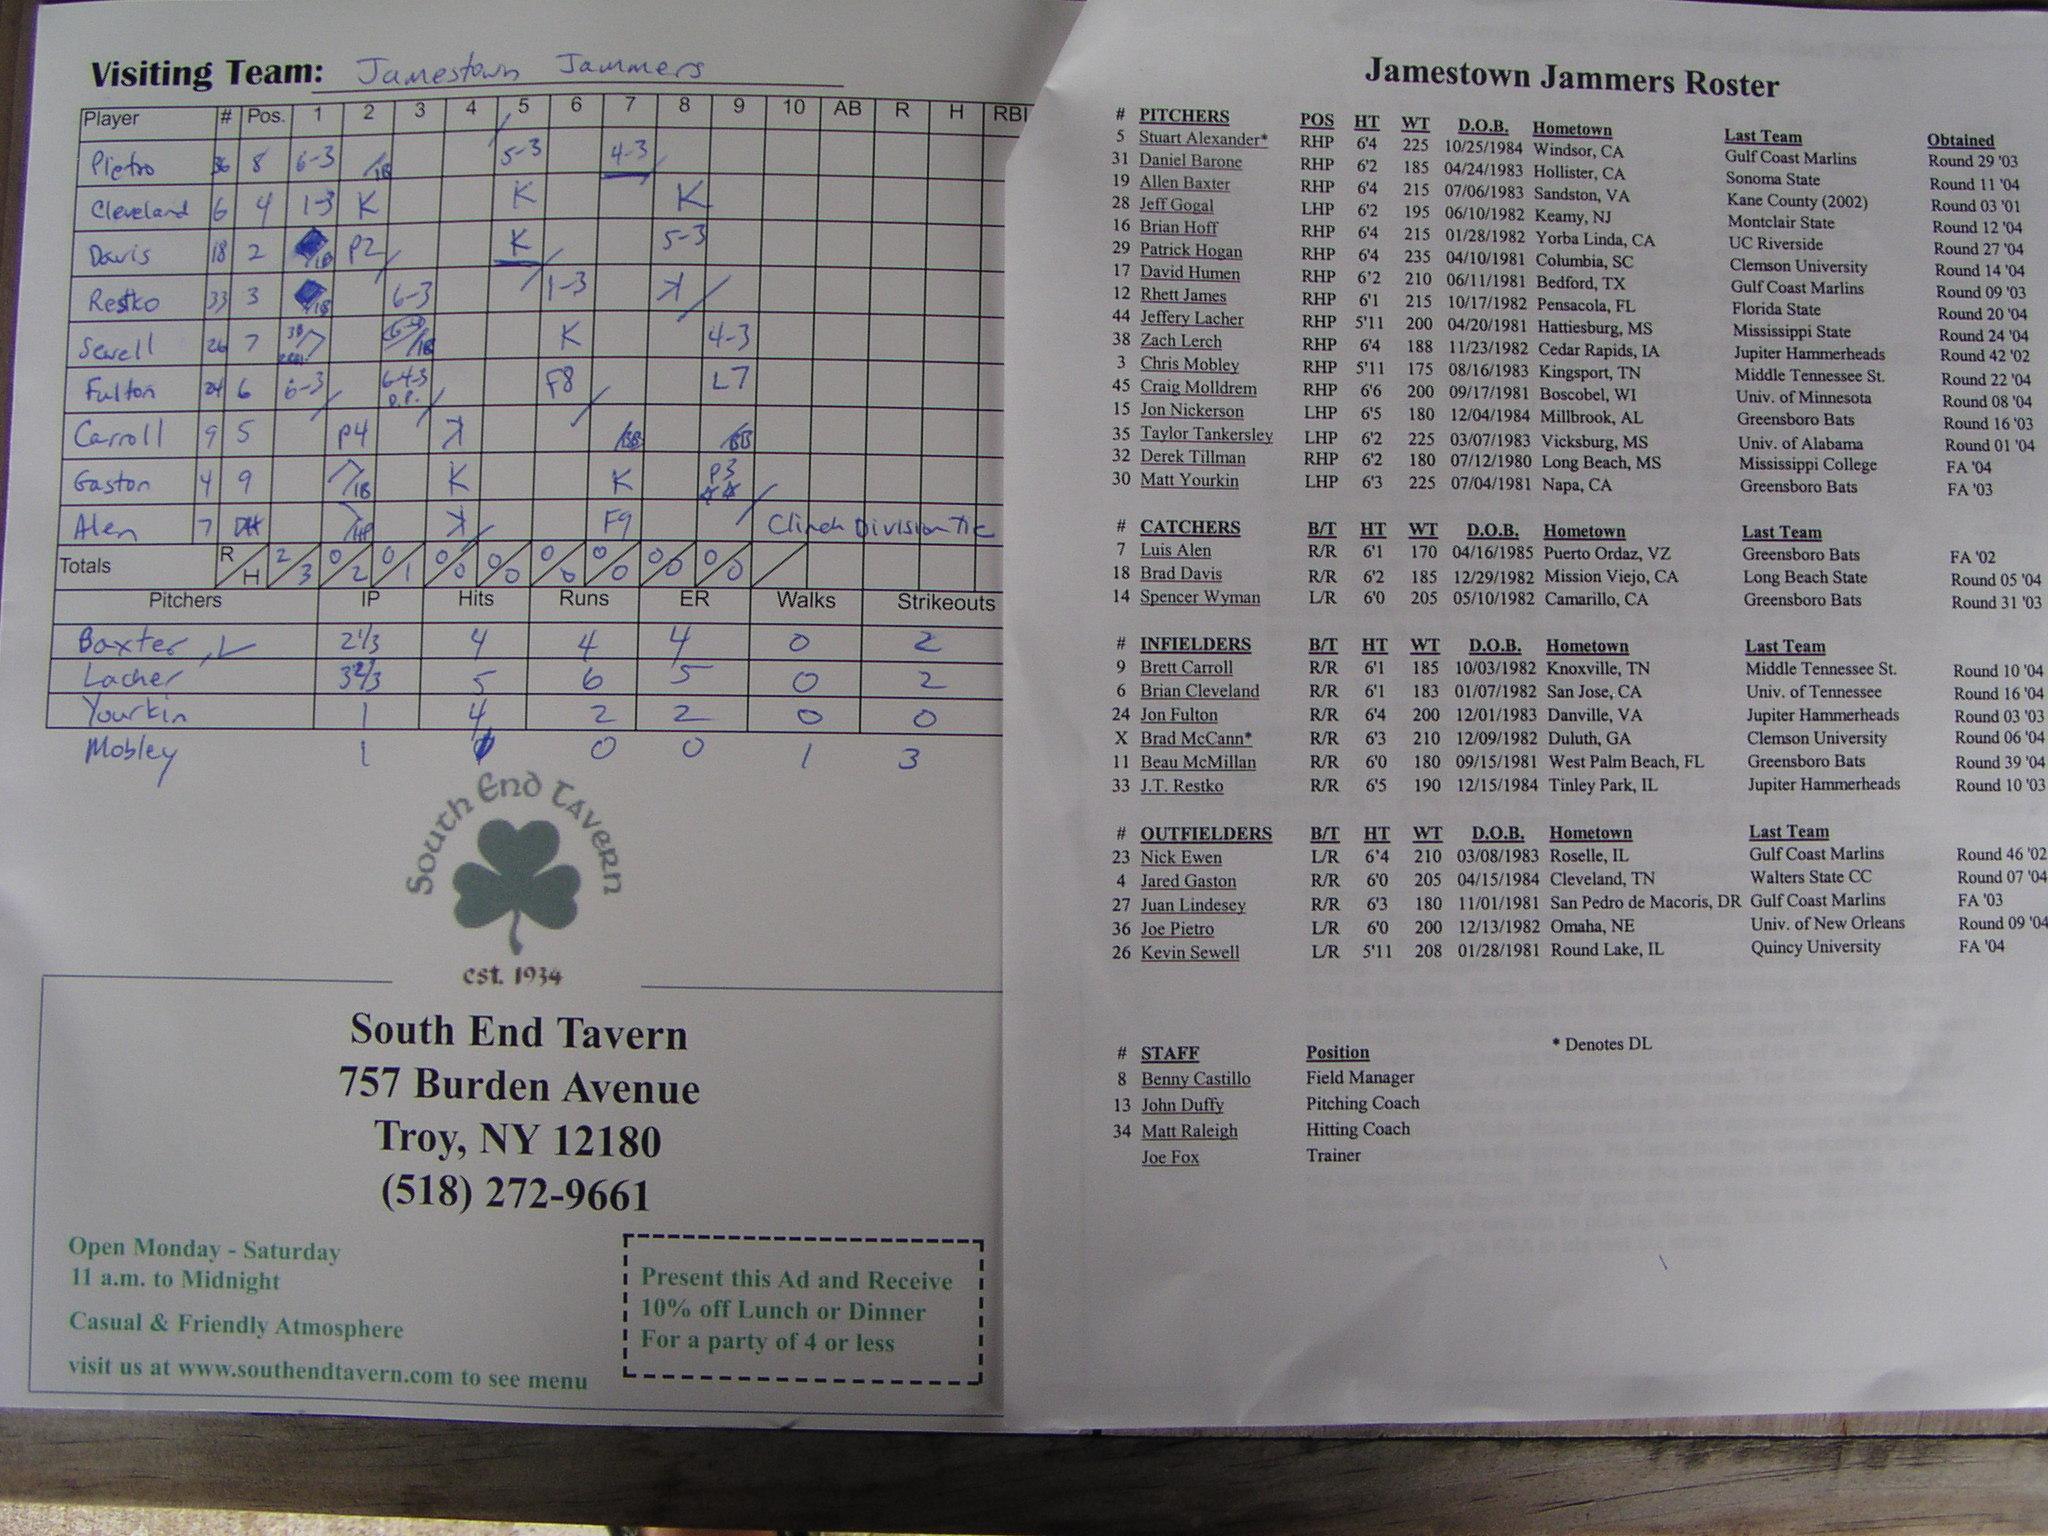 Visiting Team: Jamestown Jammers
Player # Pos. 1 2 3 4 5 6 7 8 9 10 AB R H RBI
Pietro 36 8 6-3 /1B 5-3 4-3
Cleveland 6 4 1-3 K K K
Davis 18 2 /1B P2 K 5-3
Restko 33 3 /1B 6-3 1-3 K
Sewell 26 7 3B /1B K 4-3
Fulton 24 6 6-3 6-4-3 D.P. F8 L7
Carroll 9 5 P4 K /BB /BB
Gaston 4 9 /1B K K P3
Alen 7 DH K F9 Clinch Division Tie
Totals R/H 2/3 0/2 0/1 0/0 0/0 0/0 0/0 0/0 0/0
Pitchers IP Hits Runs ER Walks Strikeouts
Baxter, L 2 1/3 4 4 4 0 2
Lacher 3 2/3 5 6 5 0 2
Yourkin 1 4 2 2 0 0
Mobley 1 0 0 1 3
South End Tavern
est. 1934
South End Tavern
757 Burden Avenue
Troy, NY 12180
(518) 272-9661
Open Monday - Saturday
11 a.m. to Midnight
Casual & Friendly Atmosphere
visit us at www.southendtavern.com to see menu
Present this Ad and Receive
10% off Lunch or Dinner
For a party of 4 or less
Jamestown Jammers Roster
# PITCHERS POS HT WT D.O.B. Hometown Last Team Obtained
5 Stuart Alexander* RHP 6'4 225 10/25/1984 Windsor, CA Gulf Coast Marlins Round 29 '03
31 Daniel Barone RHP 6'2 185 04/24/1983 Hollister, CA Sonoma State Round 11 '04
19 Allen Baxter RHP 6'4 215 07/06/1983 Sandston, VA Kane County (2002) Round 03 '01
28 Jeff Gogal LHP 6'2 195 06/10/1982 Keamy, NJ Montclair State Round 12 '04
16 Brian Hoff RHP 6'4 215 01/28/1982 Yorba Linda, CA UC Riverside Round 27 '04
29 Patrick Hogan RHP 6'4 235 04/10/1981 Columbia, SC Clemson University Round 14 '04
17 David Humen RHP 6'2 210 06/11/1981 Bedford, TX Gulf Coast Marlins Round 09 '03
12 Rhett James RHP 6'1 215 10/17/1982 Pensacola, FL Florida State Round 20 '04
44 Jeffery Lacher RHP 5'11 200 04/20/1981 Hattiesburg, MS Mississippi State Round 24 '04
38 Zach Lerch RHP 6'4 188 11/23/1982 Cedar Rapids, IA Jupiter Hammerheads Round 42 '02
3 Chris Mobley RHP 5'11 175 08/16/1983 Kingsport, TN Middle Tennessee St. Round 22 '04
45 Craig Molldrem RHP 6'6 200 09/17/1981 Boscobel, WI Univ. of Minnesota Round 08 '04
15 Jon Nickerson LHP 6'5 180 12/04/1984 Millbrook, AL Greensboro Bats Round 16 '03
35 Taylor Tankersley LHP 6'2 225 03/07/1983 Vicksburg, MS Univ. of Alabama Round 01 '04
32 Derek Tillman RHP 6'2 180 07/12/1980 Long Beach, MS Mississippi College FA '04
30 Matt Yourkin LHP 6'3 225 07/04/1981 Napa, CA Greensboro Bats FA '03
# CATCHERS B/T HT WT D.O.B. Hometown Last Team
7 Luis Alen R/R 6'1 170 04/16/1985 Puerto Ordaz, VZ Greensboro Bats FA '02
18 Brad Davis R/R 6'2 185 12/29/1982 Mission Viejo, CA Long Beach State Round 05 '04
14 Spencer Wyman L/R 6'0 205 05/10/1982 Camarillo, CA Greensboro Bats Round 31 '03
# INFIELDERS B/T HT WT D.O.B. Hometown Last Team
9 Brett Carroll R/R 6'1 185 10/03/1982 Knoxville, TN Middle Tennessee St. Round 10 '04
6 Brian Cleveland R/R 6'1 183 01/07/1982 San Jose, CA Univ. of Tennessee Round 16 '04
24 Jon Fulton R/R 6'4 200 12/01/1983 Danville, VA Jupiter Hammerheads Round 03 '03
X Brad McCann* R/R 6'3 210 12/09/1982 Duluth, GA Clemson University Round 06 '04
11 Beau McMillan R/R 6'0 180 09/15/1981 West Palm Beach, FL Greensboro Bats Round 39 '04
33 J.T. Restko R/R 6'5 190 12/15/1984 Tinley Park, IL Jupiter Hammerheads Round 10 '03
# OUTFIELDERS B/T HT WT D.O.B. Hometown Last Team
23 Nick Ewen L/R 6'4 210 03/08/1983 Roselle, IL Gulf Coast Marlins Round 46 '02
4 Jared Gaston R/R 6'0 205 04/15/1984 Cleveland, TN Walters State CC Round 07 '04
27 Juan Lindesey R/R 6'3 180 11/01/1981 San Pedro de Macoris, DR Gulf Coast Marlins FA '03
36 Joe Pietro L/R 6'0 200 12/13/1982 Omaha, NE Univ. of New Orleans Round 09 '04
26 Kevin Sewell L/R 5'11 208 01/28/1981 Round Lake, IL Quincy University FA '04
* Denotes DL
# STAFF Position
8 Benny Castillo Field Manager
13 John Duffy Pitching Coach
34 Matt Raleigh Hitting Coach
Joe Fox Trainer